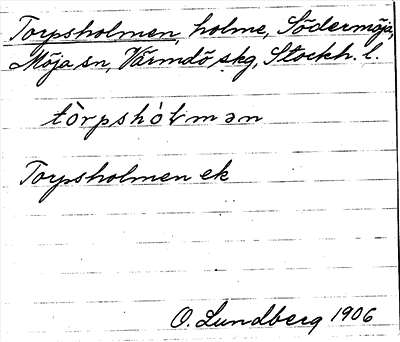 Torpsholmen, holme, Södermöja,
Möja sn, Värmdö skg, Stockh. l.
tòrpshólmən
Torpsholmen ek
O. Lundberg 1906